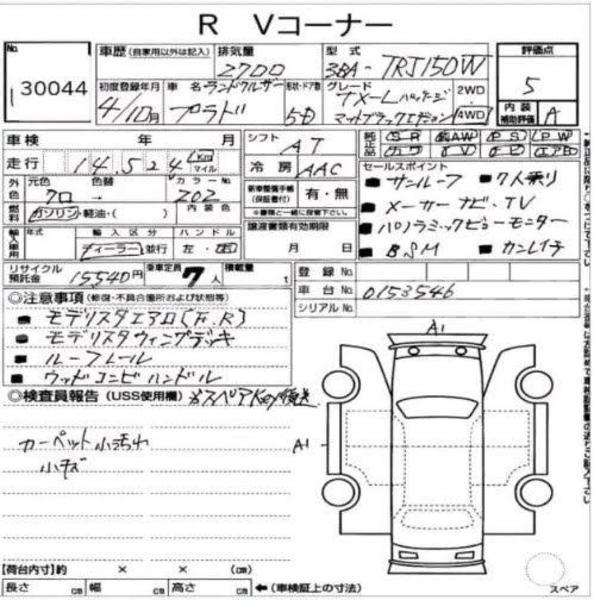 R Vコーナー
No. 30044
車歴 (自家用以外は記入)
排気量 2700
型式 3BA-TRJ150W
評価点 5
初度登録年月 4/10月
車名 ランドクルーザー プラド
形状・ドア数 5D
グレード TX-Lパッケージ マットブラックエディション
2WD 4WD
内装補助評価 A
車検 年 月
シフト AT
純正品 SR AW PS PW
カワ TV ナビ エアB
走行 14,524 Km マイル
冷房 AAC
セールスポイント
サンルーフ 7人乗り
外色 元色 クロ 色替 カラーNo. 202
新車整備手帳 (保証書付) 有・無
※書類と一緒に後日お渡し下さい。
メーカーナビ・TV
ガソリン・軽油・( ) 内装色
譲渡書類有効期限
月 日
パノラミックビューモニター
輸入車用 年式 輸入区分 ディーラー 並行 ハンドル 左・右
BSM カンレイチ
リサイクル預託金 15540円
乗車定員 7人
積載量 t
登録No.
車台No. 0153546
シリアルNo.
◎注意事項 (修復・不具合箇所および状態等)
モデリスタエアロ(F,R)
モデリスタウィングデッキ
ルーフレール
ウッドコンビハンドル
◎検査員報告 (USS使用欄)
カーペット小汚れ
小キズ
A1
A1
【荷台内寸】約 × × (cm)
長さ 幅 高さ (cm) ←(車検証上の寸法)
スペア